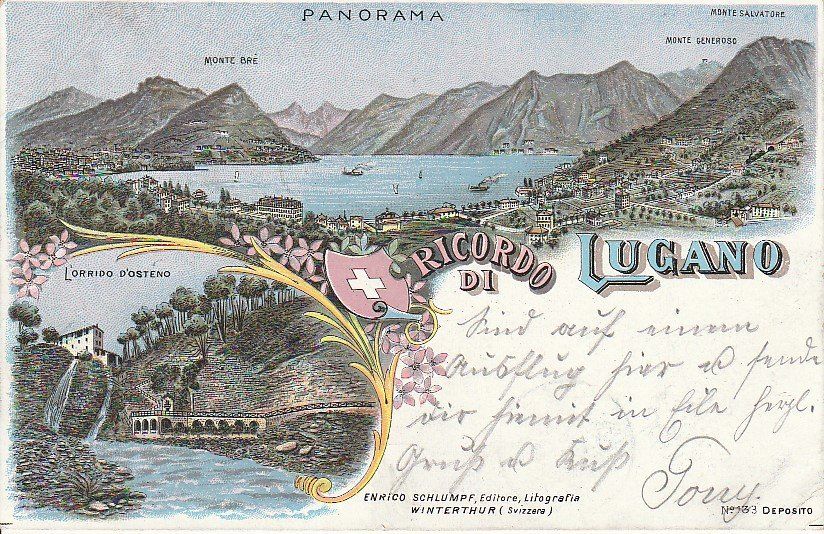 PANORAMA
MONTE SALVATORE
MONTE GENEROSO
MONTE BRÈ
LORRIDO D'OSTENO
RICORDO
DI
LUGANO
Sind auf einem
Ausflug hier u. sende
dir hiermit in Eile herzl.
Gruß u Kuß
Tony.
ENRICO SCHLUMPF, Editore, Litografia
WINTERTHUR (Svizzera)
No 133 DEPOSITO